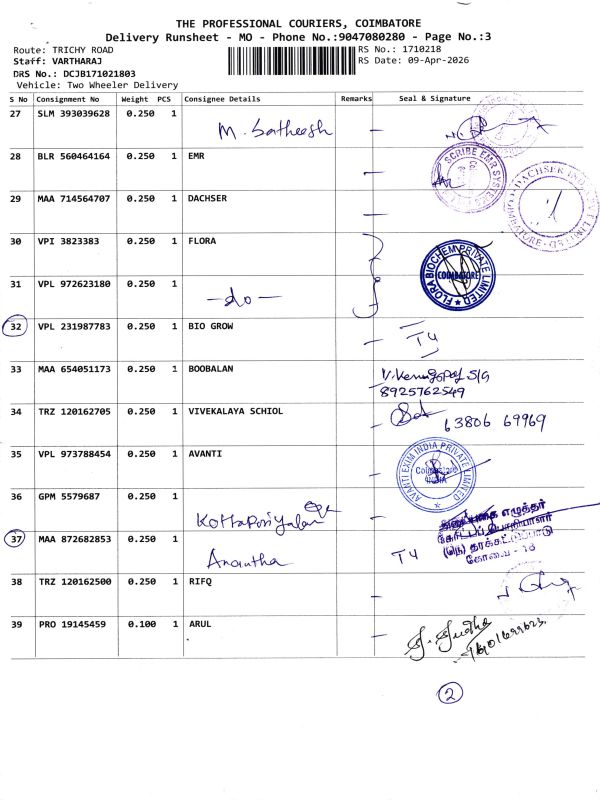 THE PROFESSIONAL COURIERS, COIMBATORE
Delivery Runsheet - MO - Phone No.:9047080280 - Page No.:3
Route: TRICHY ROAD
RS No.: 1710218
Staff: VARTHARAJ
RS Date: 09-Apr-2026
DRS No.: DCJB171021803
Vehicle: Two Wheeler Delivery
S No Consignment No Weight PCS Consignee Details Remarks Seal & Signature
27 SLM 393039628 0.250 1 M. Satheesh
28 BLR 560464164 0.250 1 EMR SCRIBE EMR SYSTEMS
29 MAA 714564707 0.250 1 DACHSER DACHSER LIMITED COIMBATORE
30 VPI 3823383 0.250 1 FLORA FLORA BIOCHEM PRIVATE LIMITED COIMBATORE
31 VPL 972623180 0.250 1 -do-
32 VPL 231987783 0.250 1 BIO GROW T4
33 MAA 654051173 0.250 1 BOOBALAN V. Venugopal S/G
8925762549
34 TRZ 120162705 0.250 1 VIVEKALAYA SCHIOL 63806 69969
35 VPL 973788454 0.250 1 AVANTI AVANTI EXIM INDIA PRIVATE LIMITED Coimbatore INDIA
36 GPM 5579687 0.250 1 எழுத்தர்
37 MAA 872682853 0.250 1 Anantha T4 தரக்கட்டுப்பாடு
கோவை - 18
38 TRZ 120162500 0.250 1 RIFQ
39 PRO 19145459 0.100 1 ARUL G. Sudha
2